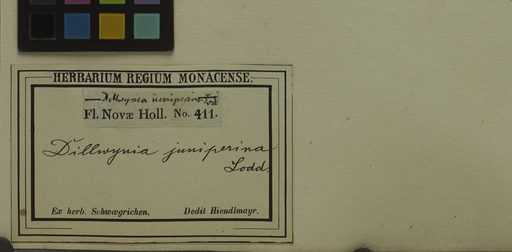 HERBARIUM REGIUM MONACENSE.
Dillwynia juniperina Lodd
Fl. Novæ Holl. No. 411.
Dillwynia juniperina
Lodd.
Ex herb. Schwægrichen. Dedit Hiendlmayr.